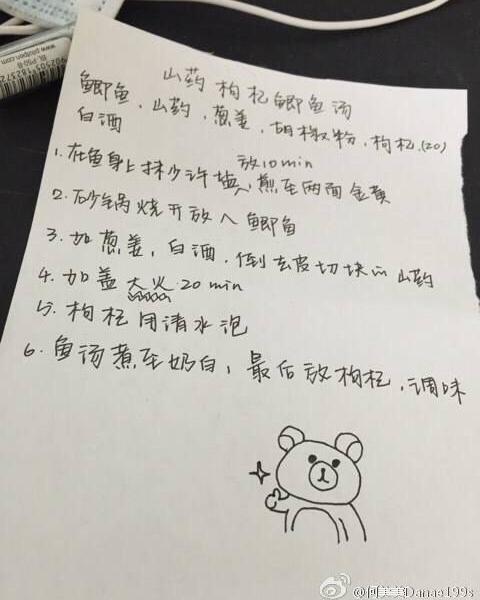 山药枸杞鲫鱼汤
鲫鱼、山药、葱姜、胡椒粉、枸杞(20)
白酒
1.在鱼身上抹少许盐、放10min煎至两面金黄
2.砂锅烧开放入鲫鱼
3.加葱姜,白酒,倒去皮切块山药
4.加盖大火20min
5.枸杞用清水泡
6.鱼汤煮至奶白,最后放枸杞,调味